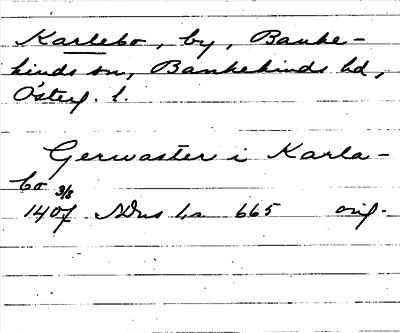 Karlebo, by, Banke-
kinds sn, Bankekinds hd,
Österg. l.
Gerwaster i Karla-
bo 3/8
1407 ns La 665 orig.